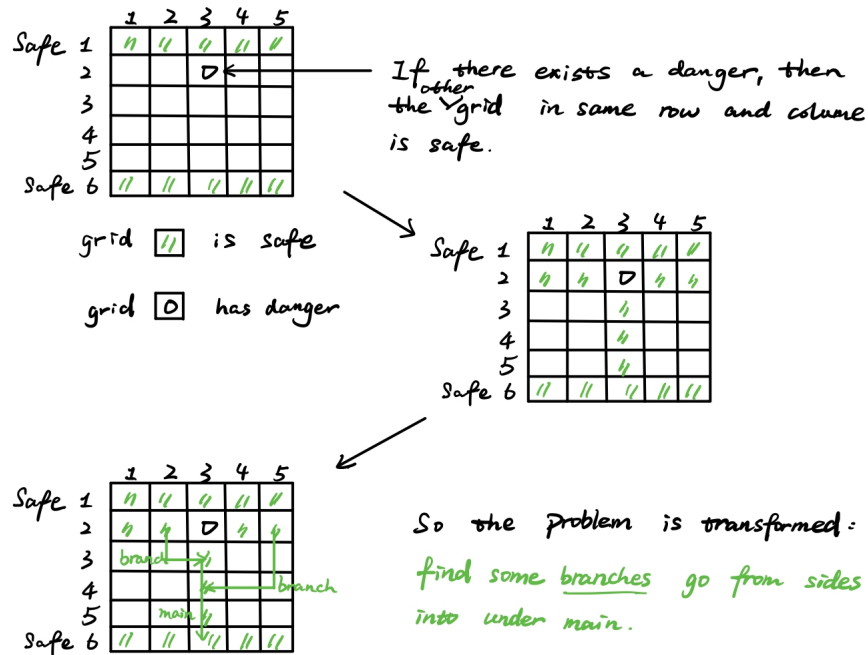 1 2 3 4 5
Safe 1
2
3
4
5
Safe 6
If there exists a danger, then
other
the grid in same row and colume
is safe.
grid is safe
grid has danger
1 2 3 4 5
Safe 1
2
3
4
5
Safe 6
1 2 3 4 5
Safe 1
2
3 branch
4 branch
5 main
Safe 6
So the problem is transformed:
find some branches go from sides
into under main.